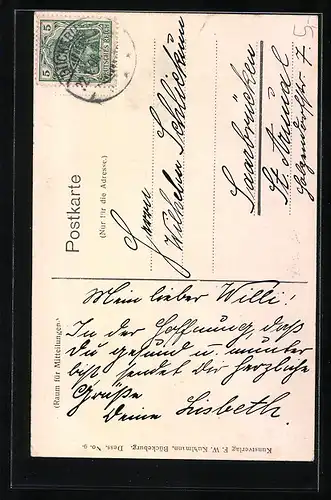 5
5
5
DEUTSCHES REICH
BÜCKEBURG
Postkarte
(Nur für die Adresse.)
Herrn
Wilhelm Schlieckmann
Saarbrücken
St. Arnual
7.
(Raum für Mitteilungen)
Mein lieber Willi!
In der Hoffnung, daß
Du gesund u. munter
bist sendet Dir herzliche
Grüße
Deine Lisbeth.
Kunstverlag F. W. Kuhlmann, Bückeburg. Dess. No. 9.